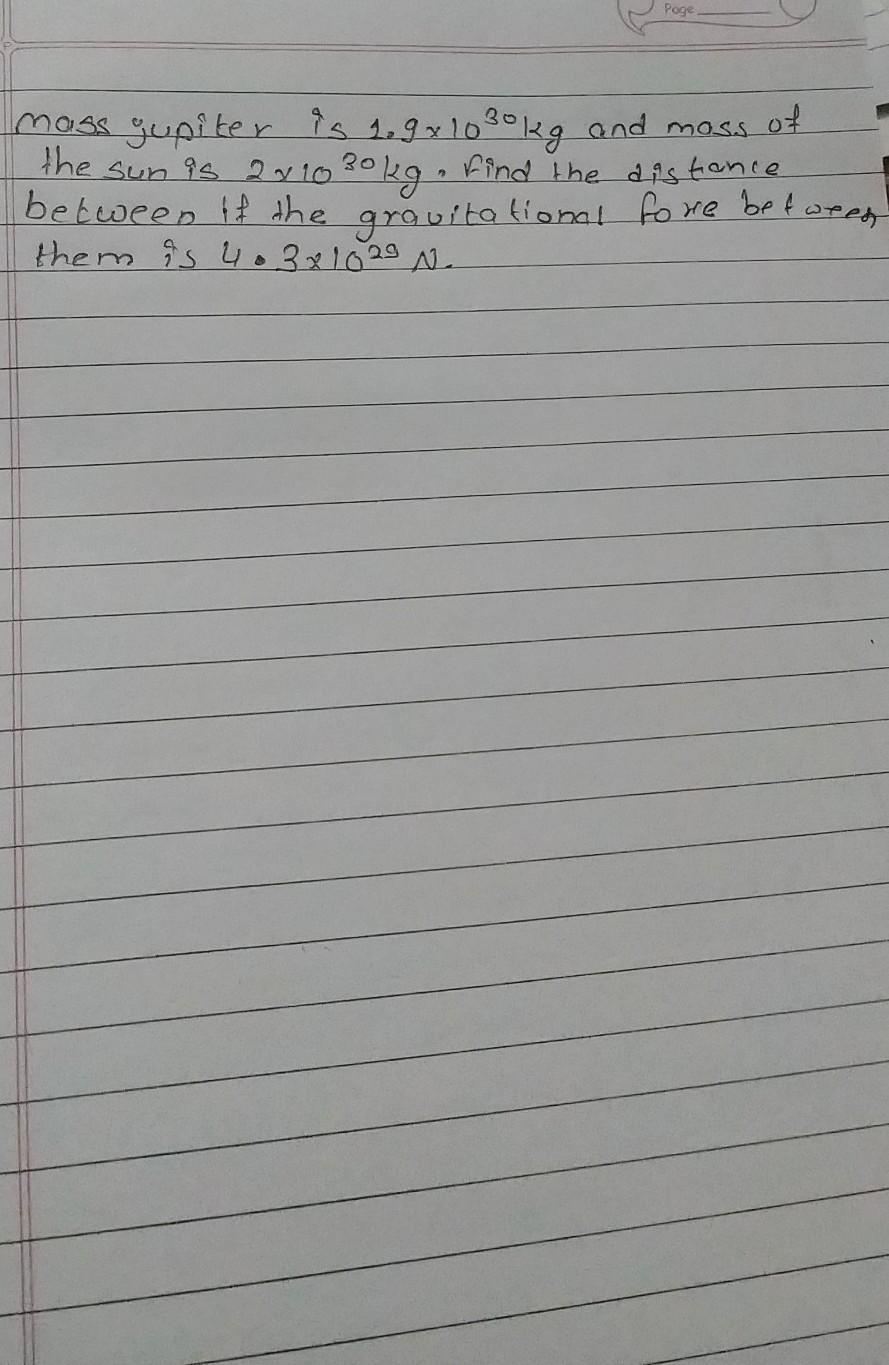 Page
mass gupiter is 1.9x10³⁰kg and mass of
the sun is 2x10³⁰kg. Find the distance
between if the gravitational forre between
them is 4.3x10²⁹ N.